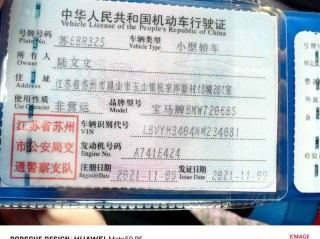 中华人民共和国机动车行驶证
Vehicle License of the People's Republic of China
号牌号码 苏EBR325 车辆类型 小型轿车
Plate No. Vehicle Type
所有人 陆文文
Owner
住址 江苏省苏州市昆山市玉山镇
Address
使用性质 非营运 品牌型号 宝马牌BMW7206BS
Use Character Model
江苏省苏州
市公安局交
通警察支队
车辆识别代号
VIN
发动机号码 A741E424
Engine No.
注册日期 2021-11-09 发证日期 2021-11-09
Register Date Issue Date
PORSCHE DESIGN | HUAWEI Mate50 RS
XMAGE